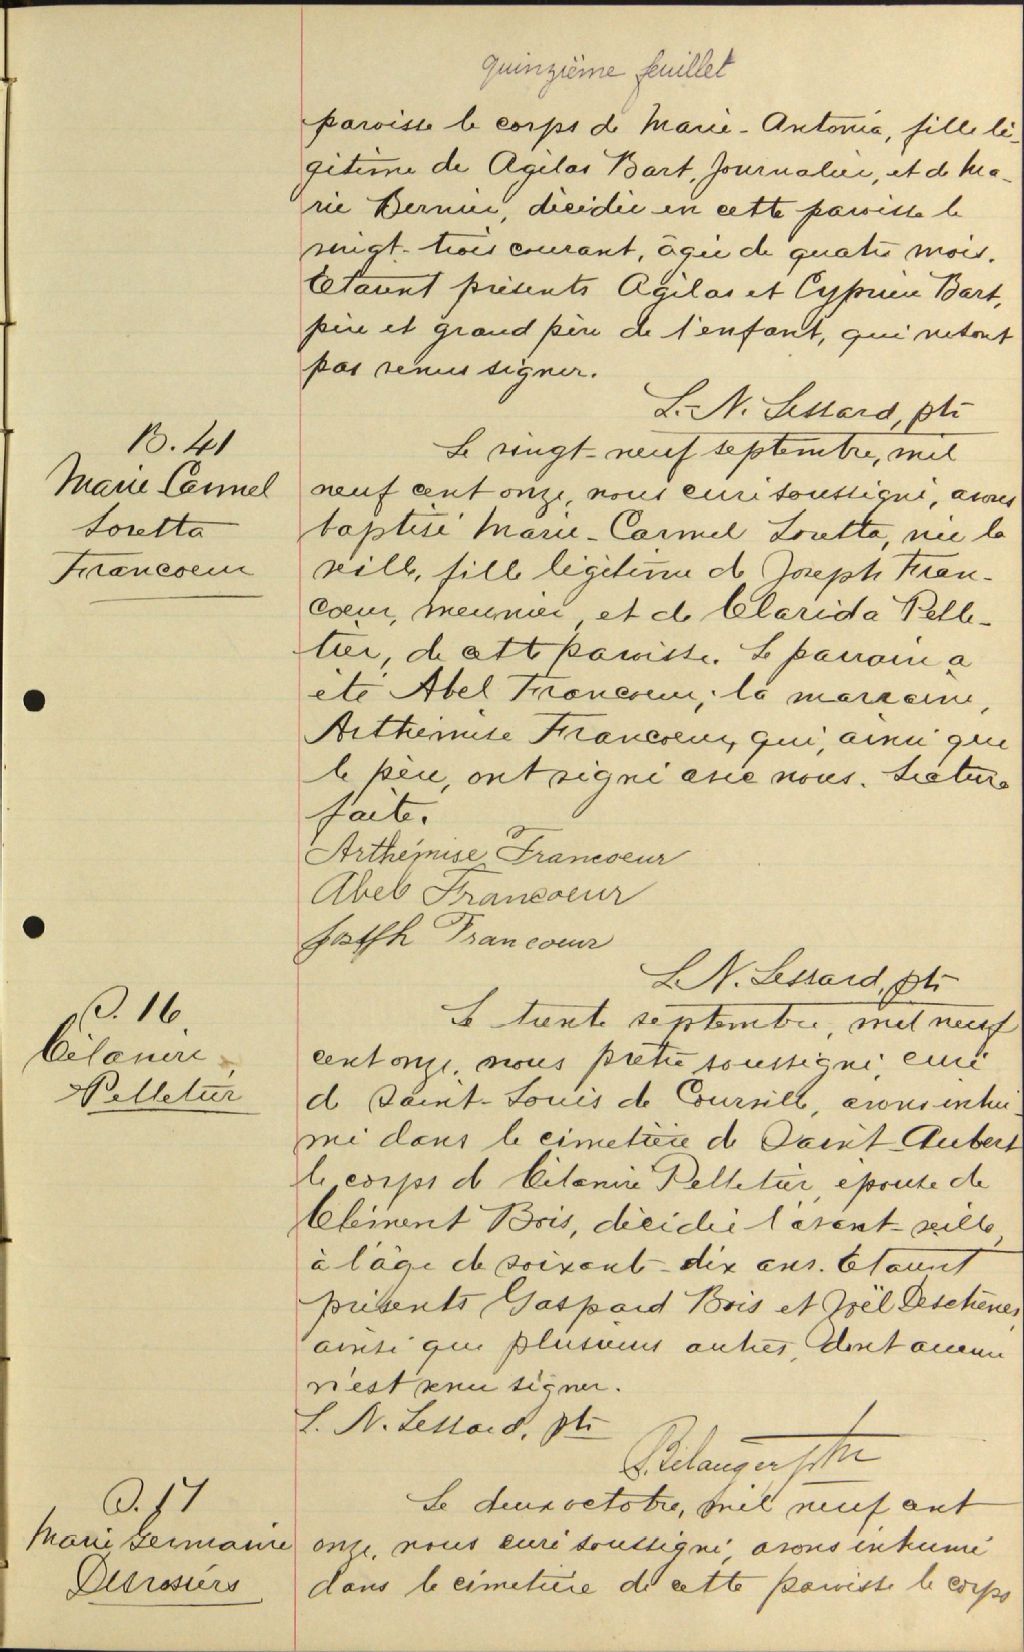 quinzième feuillet
paroisse le corps de Marie-Antonia, fille lé-
gitime de Agilas Bart, Journalier, et de Ma-
rie Bernier, décédée en cette paroisse le
vingt-trois courant, âgée de quatre mois.
Etaient présents Agilas et Cyprien Bart,
père et grand père de l'enfant, qui ne sont
pas venus signer.
L.-N. Lessard, ptr
B. 41
Marie Carmel
Loretta
Francoeur
Le vingt-neuf septembre, mil
neuf cent onze, nous curé soussigné, avons
baptisé Marie-Carmel Loretta, née la
veille, fille légitime de Joseph Fran-
coeur, meunier, et de Clarida Pelle-
tier, de cette paroisse. Le parrain a
été Abel Francoeur; la marraine,
Arthémise Francoeur, qui, ainsi que
le père, ont signé avec nous. Lecture
faite.
Arthémise Francoeur
Abel Francoeur
Joseph Francoeur
L.N. Lessard, ptr
S. 16
Célanire
Pelletier
Le trente septembre, mil neuf
cent onze, nous prêtre soussigné, curé
de Saint-Louis de Courville, avons inhu-
mé dans le cimetière de Saint-Aubert
le corps de Célanire Pelletier, épouse de
Clément Bois, décédée l'avant-veille,
à l'âge de soixante-dix ans. Etaient
présents Gaspard Bois et Joël Deschênes,
ainsi que plusieurs autres, dont aucun
n'est venu signer.
L. N. Lessard, ptr
Bélanger ptre
S. 17
Marie Germaine
Desrosiers
Le deux octobre, mil neuf cent
onze, nous curé soussigné, avons inhumé
dans le cimetière de cette paroisse le corps